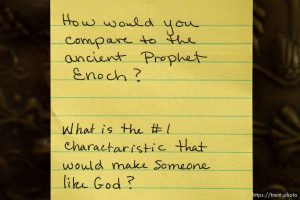 How would you
compare to the
ancient Prophet
Enoch?
What is the #1
charactaristic that
would make someone
like God?
https://trent.photo